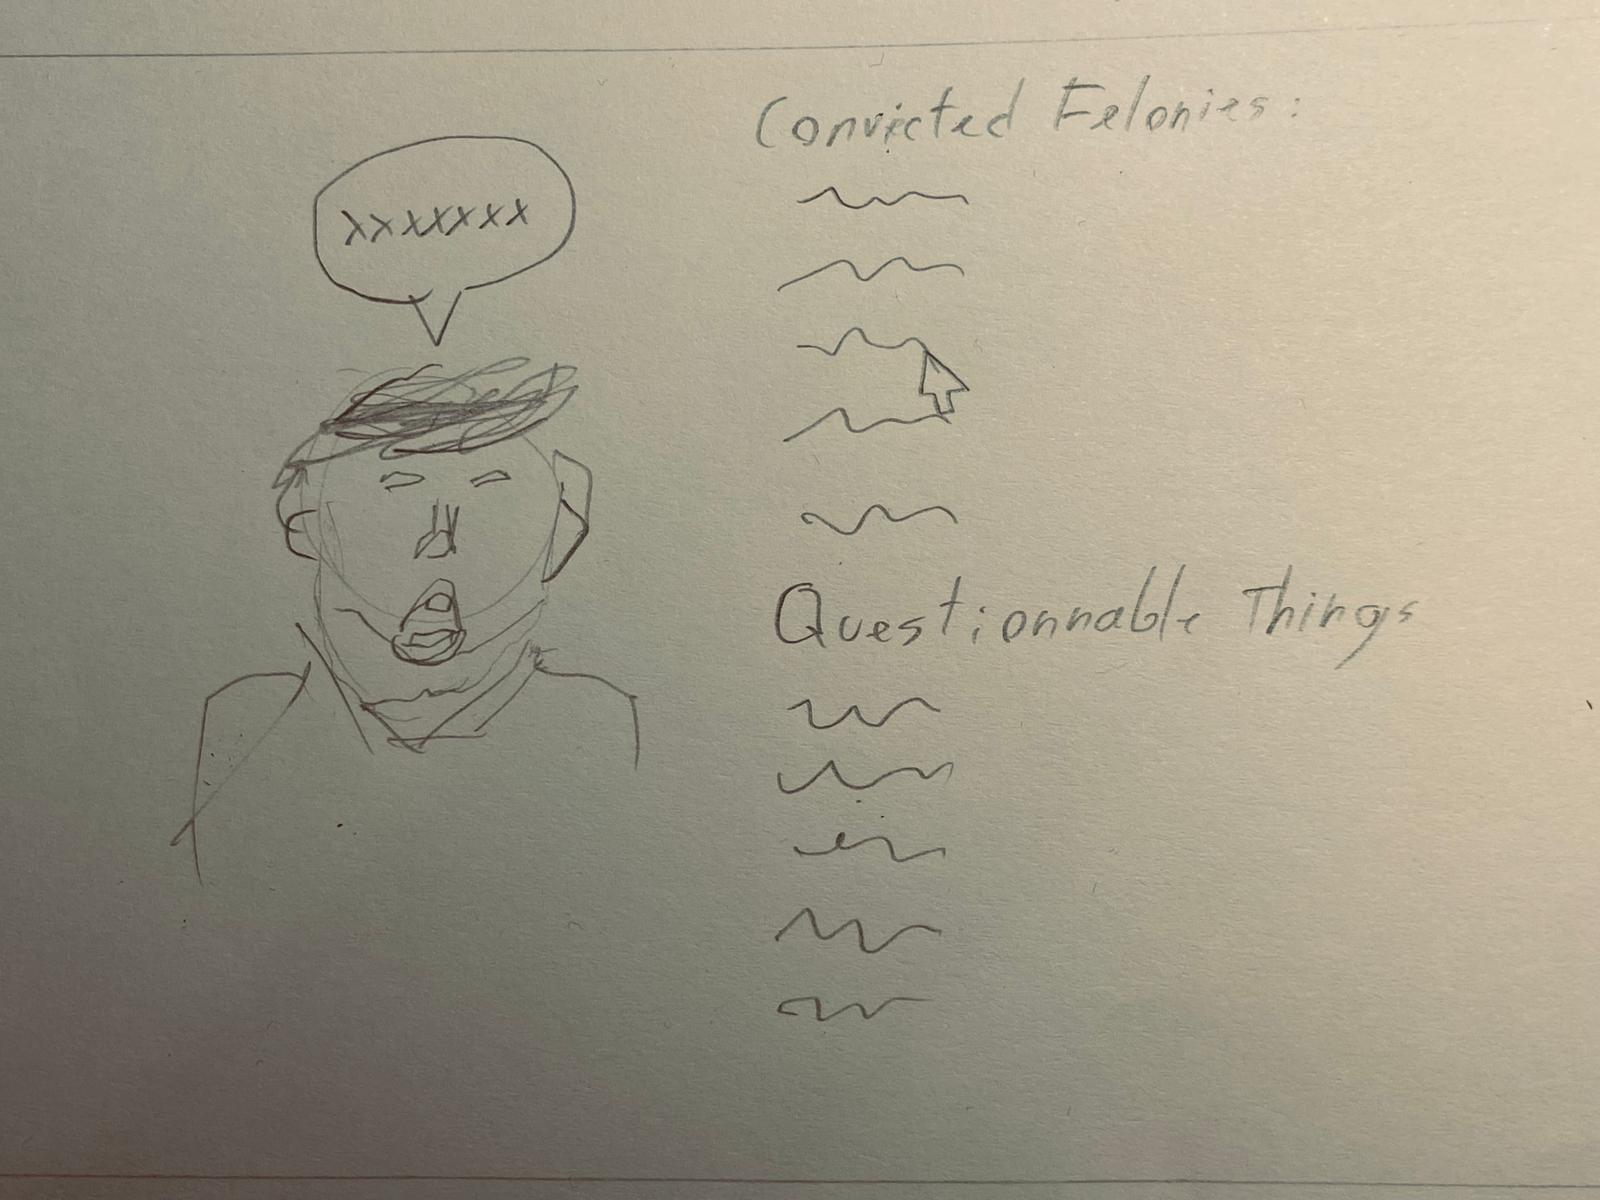 xxxxxxx
Convicted Felonies:
Questionnable Things